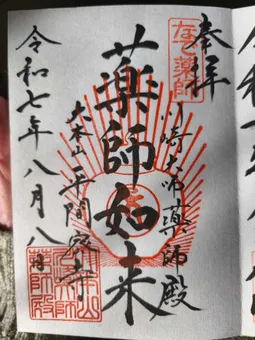 奉拝
なで薬師
川崎大師薬師殿
薬師如来
大本山平間寺
令和七年八月八日